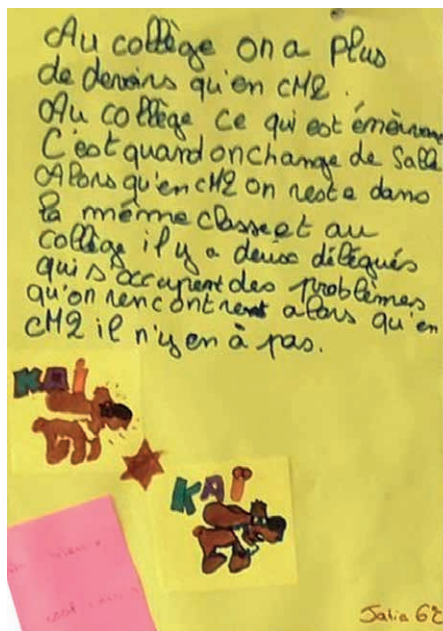 Au collège on a plus
de devoirs qu'en CM2.
Au collège ce qui est
C'est quand on change de Salle
Alors qu'en CM2 on reste dans
la même classe et au
collège il y a deux délégués
qui s'occupent des problèmes
qu'on rencontrent alors qu'en
CM2 il n'y en à pas.
KAÏ
KAÏ
6è